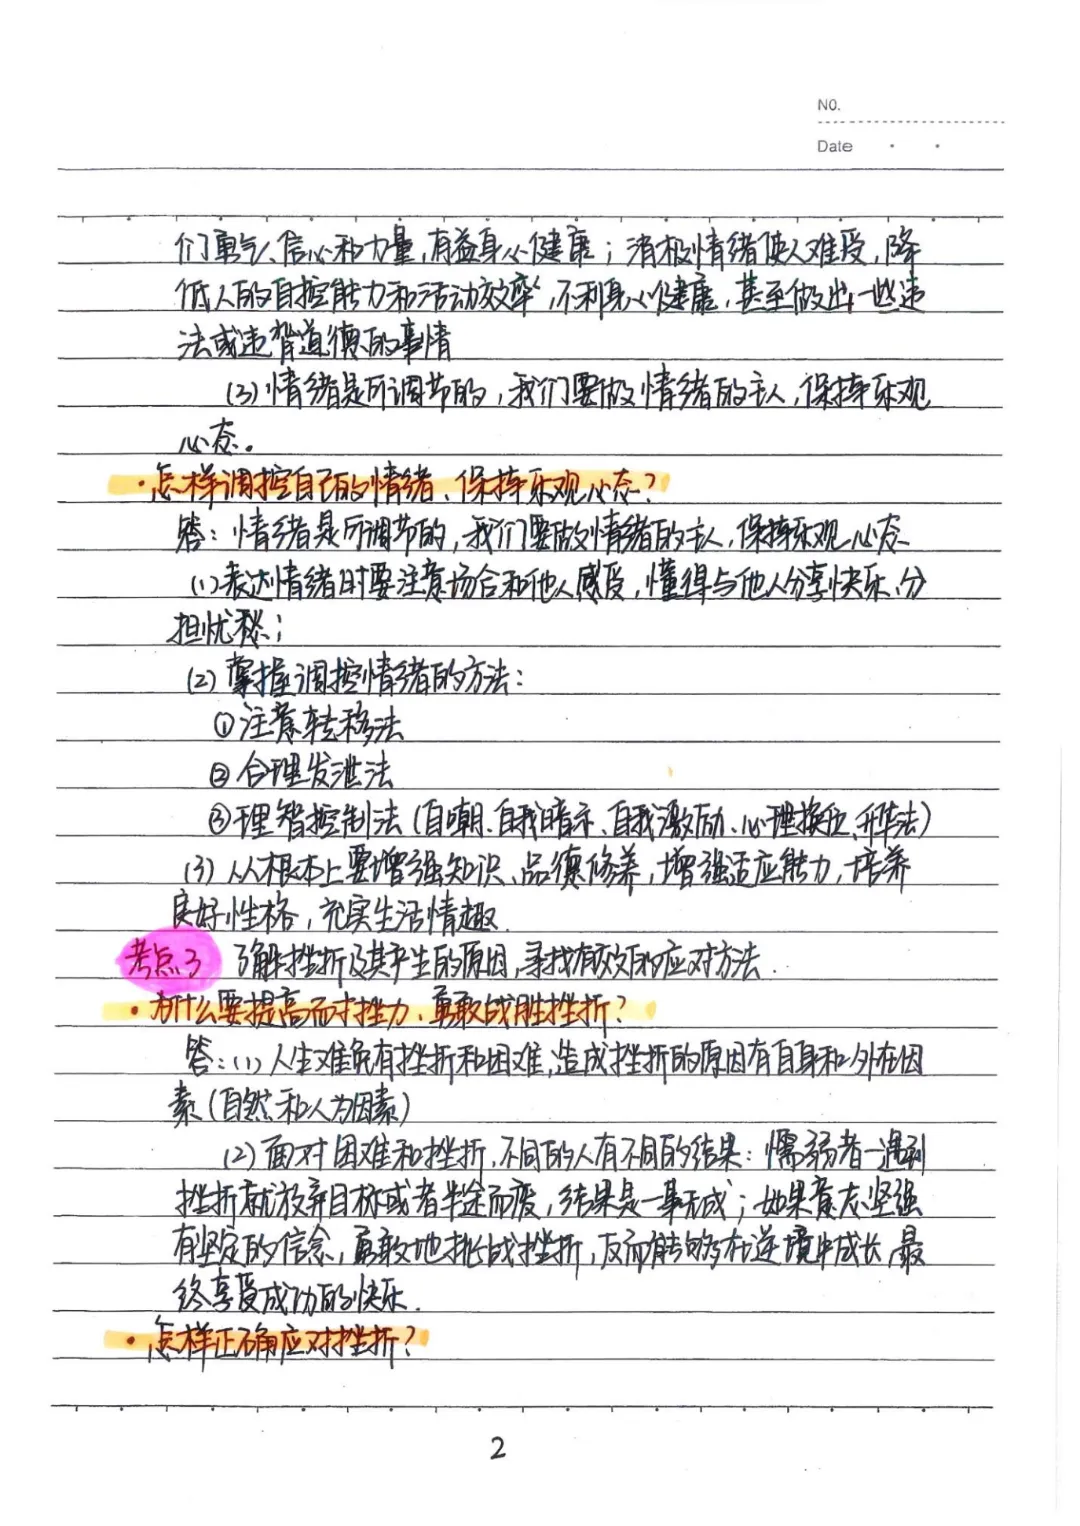 NO.
Date
们勇气、信心和力量,有益身心健康;消极情绪使人难受,降
低人的自控能力和活动效率,不利身心健康,甚至做出一些违
法或违背道德的事情
(3)情绪是可调节的,我们要做情绪的主人,保持乐观
心态。
·怎样调控自己的情绪、保持乐观心态?
答:情绪是可调节的,我们要做情绪的主人,保持乐观心态
(1)表达情绪时要注意场合和他人感受,懂得与他人分享快乐、分
担忧愁;
(2)掌握调控情绪的方法:
①注意转移法
②合理发泄法
③理智控制法(自嘲、自我暗示、自我激励、心理换位、升华法)
(3)从根本上要增强知识、品德修养,增强适应能力,培养
良好性格,充实生活情趣.
考点3 了解挫折及其产生的原因,寻找有效的应对方法.
·为什么要提高耐挫力、勇敢战胜挫折?
答:(1)人生难免有挫折和困难,造成挫折的原因有自身和外在因
素(自然和人为因素)
(2)面对困难和挫折,不同的人有不同的结果:懦弱者一遇到
挫折就放弃目标或者半途而废,结果是一事无成;如果意志坚强
有坚定的信念,勇敢地挑战挫折,反而能够在逆境中成长,最
终享受成功的快乐.
·怎样正确应对挫折?
2